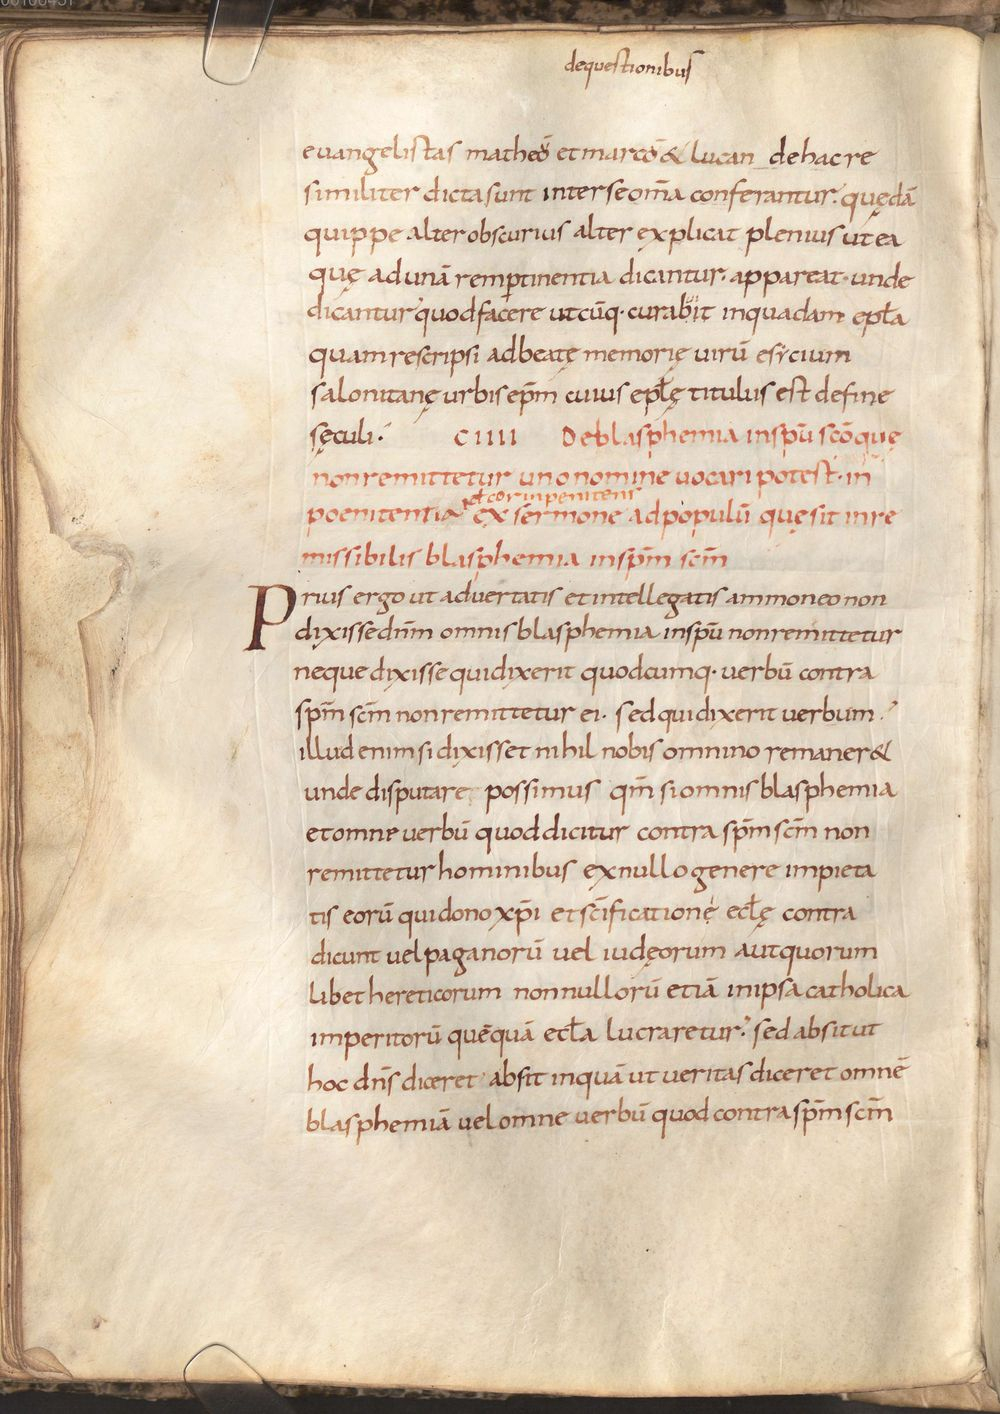 de questionibus
euangelistas matheū et marcū & lucan de hac re
similiter dicta sunt inter se om̄a conferantur. quędā
quippe alter obscurius alter explicat plenius ut ea
quę ad unā rem ꝑtinentia dicantur. appareat. unde
dicantur quod facere utcūq. curabit in quadam ep̄la
quam rescripsi ad beatę memorię uirū esycium
salonitanę urbis ep̄m cuius ep̄lę titulus est de fine
sęculi.
CIIII De blasphemia in sp̄u sc̄o quę
non remittetur uno nomine uocari potest. in
et cor inpenitens
poenitentia ex sermone ad populū quę sit inre
missibilis blasphemia in sp̄m sc̄m
Prius ergo ut aduertatis et intellegatis ammoneo non
dixisse dn̄m omnis blasphemia in sp̄u non remittetur
neque dixisse qui dixerit quodcumq. uerbū contra
sp̄m sc̄m non remittetur ei. sed qui dixerit uerbum.
illud enim si dixisset nihil nobis omnino remaner&
unde disputare possimus qm̄ si omnis blasphemia
et omne uerbū quod dicitur contra sp̄m sc̄m non
remittetur hominibus ex nullo genere impieta
tis eorū qui dono xp̄i et sc̄ificationę ecl̄ę contra
dicunt uel paganorū uel iudęorum aut quorum
libet hereticorum non nullorū etiā in ipsa catholica
imperitorū quēquā ecl̄a lucraretur. sed absit ut
hoc dn̄s diceret absit inquā ut ueritas diceret omnē
blasphemiā uel omne uerbū quod contra sp̄m sc̄m